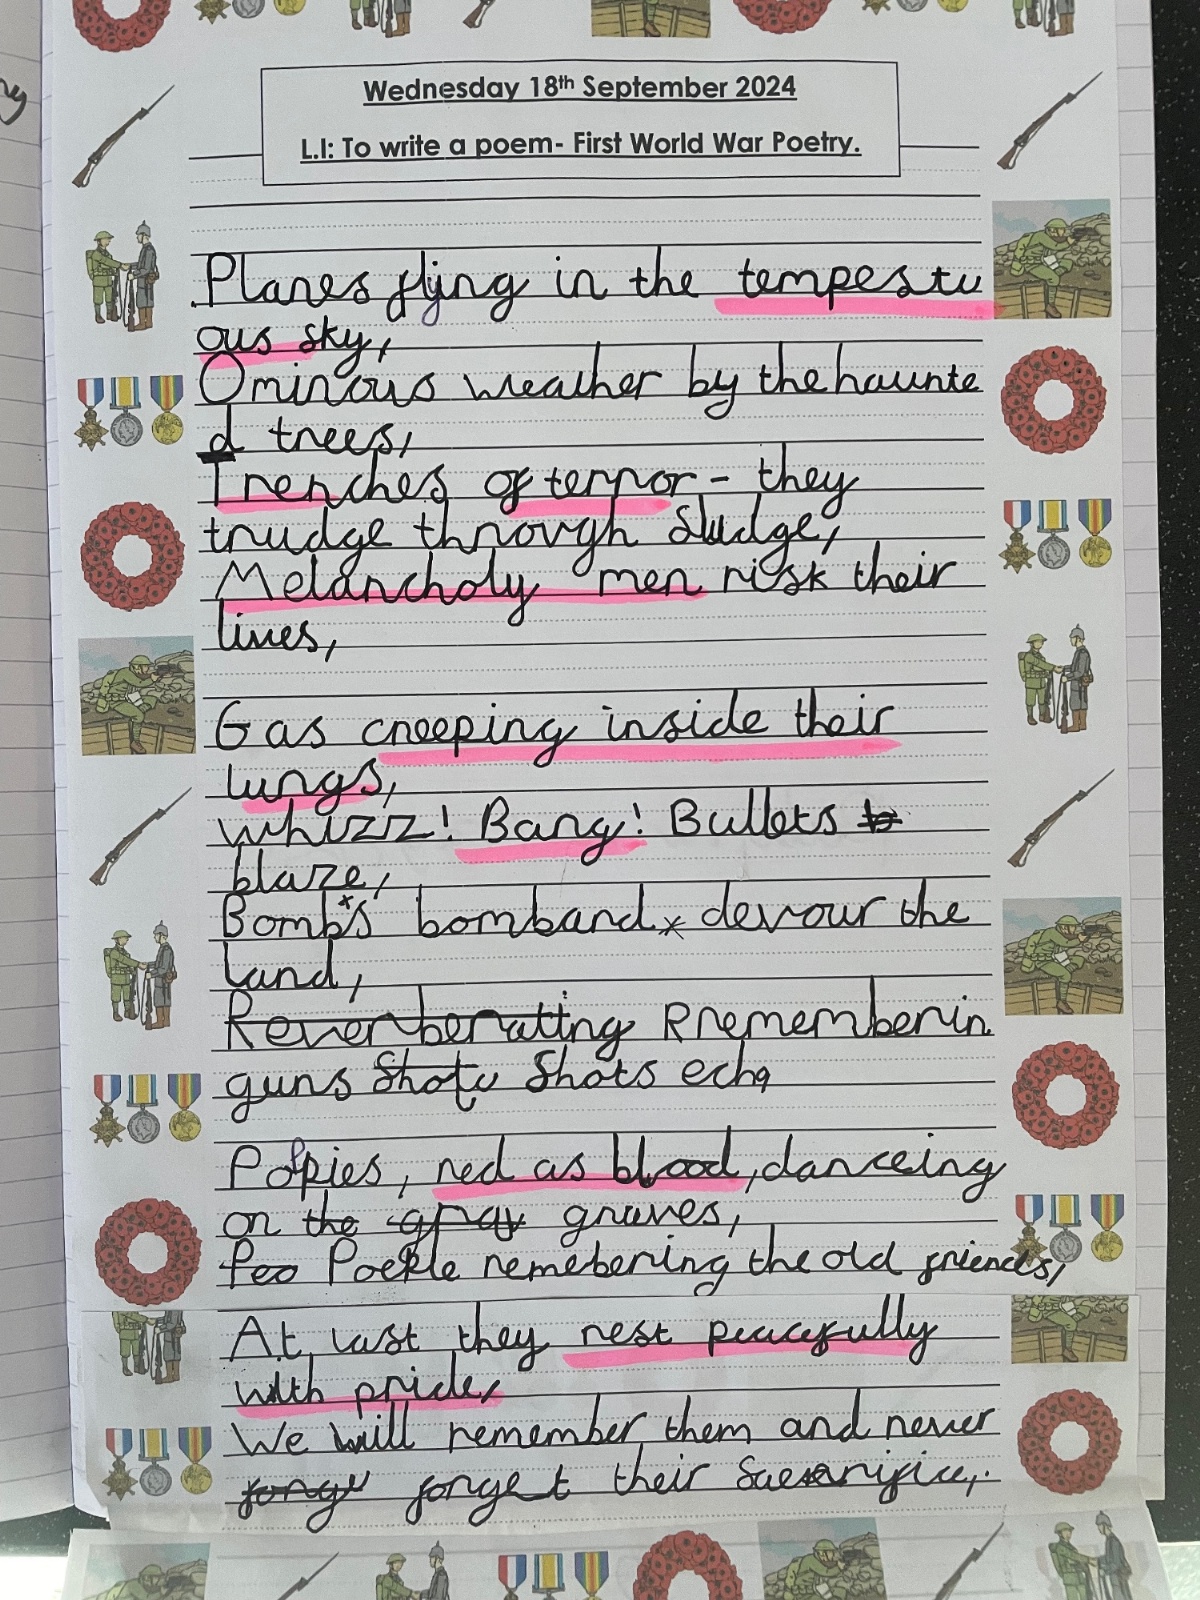 Wednesday 18th September 2024
L.I: To write a poem- First World War Poetry.
Planes flying in the tempestu
ous sky,
Ominous weather by the haunte
d trees,
Trenches of terror - they
trudge through sludge,
Melancholy men risk their
lives,
Gas creeping inside their
lungs,
whizz! Bang! Bullets to
blaze,
Bombs bombard, devour the
land,
Reverberating Rrememberin
guns Shots Shots echo
Poppies, red as blood, danceing
on the gray graves,
Peo Poeple remebering the old friends,
At last they rest peacefully
with pride,
We will remember them and never
forget their